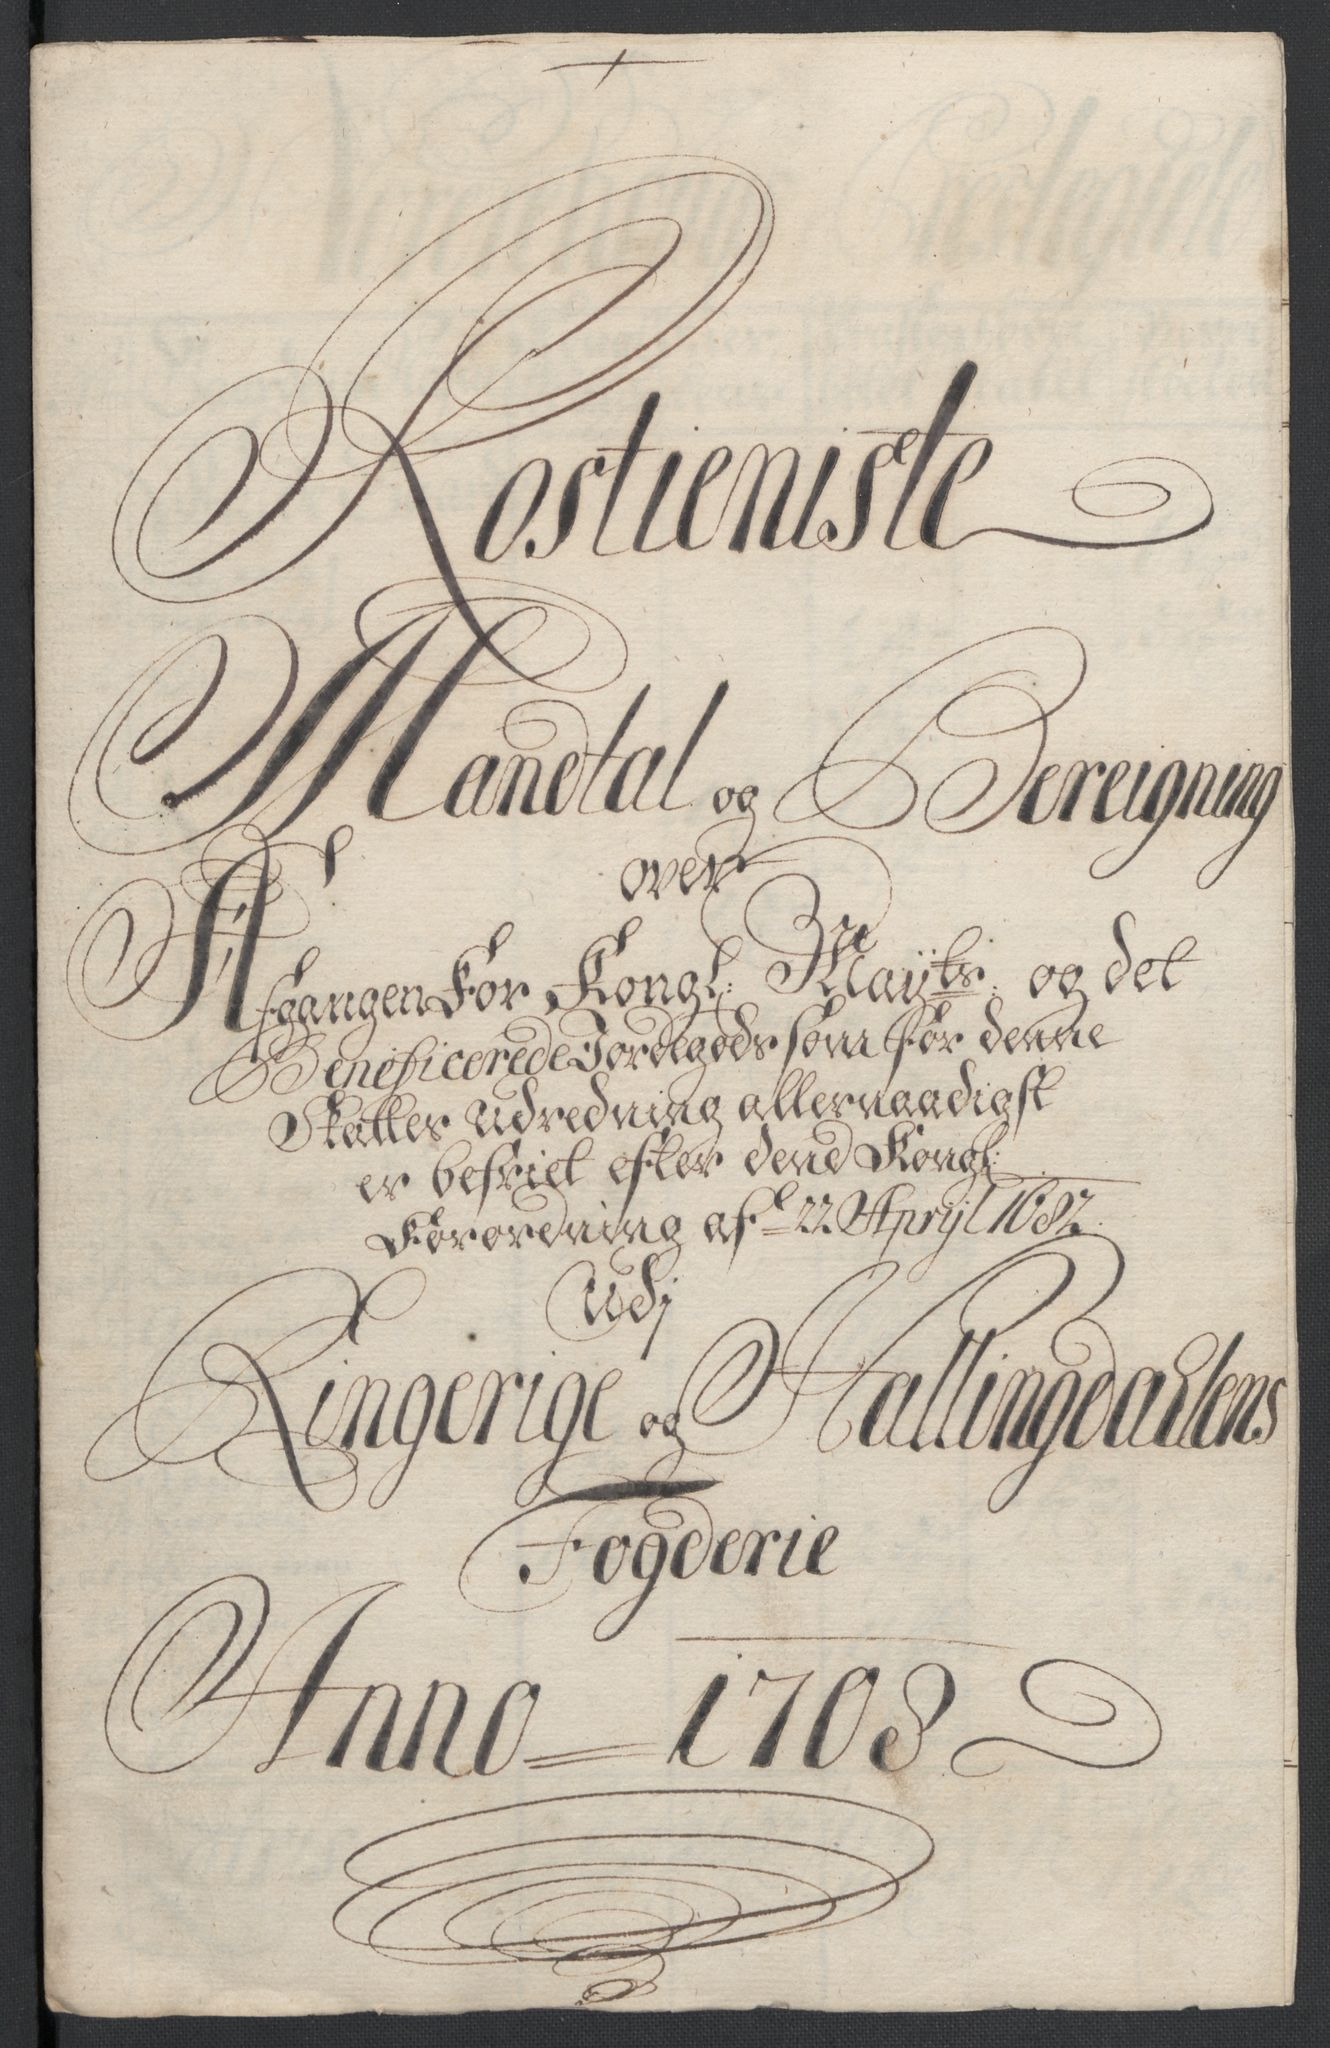 Rostieniste
Mandtal og Bereigning
over
Afgangen For Kongl: Mayts: og det
Beneficerede Jordegods som for denne
Skatters udredning allernaadigst
er befriet efter dend Kongl:
Forordning af 22 Aprijl 1682
Udj
Ringerige og Hallingdahlens
Fogderie
Anno = 1708